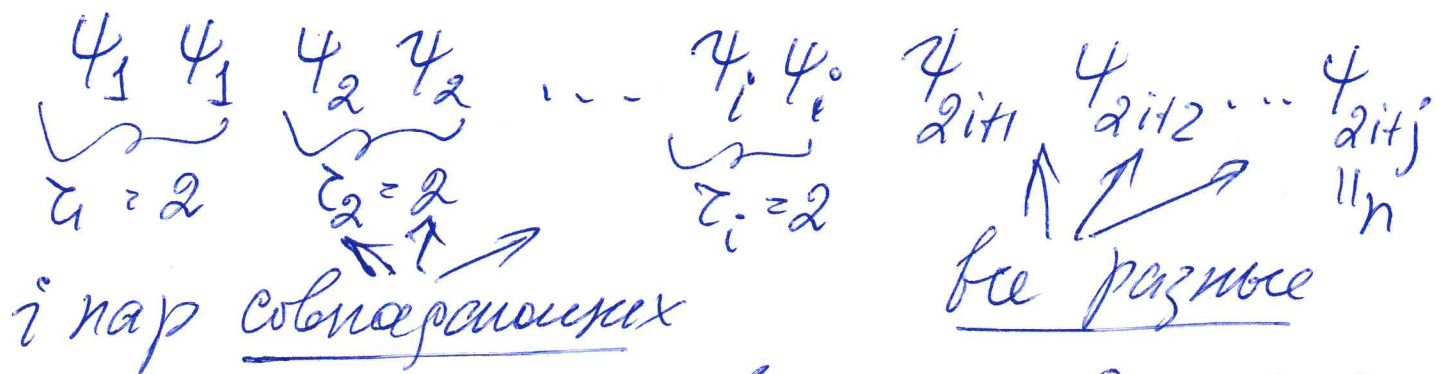 ψ₁ ψ₁ ψ₂ ψ₂ ... ψᵢ ψᵢ ψ₂ᵢ₊₁ ψ₂ᵢ₊₂ ... ψ₂ᵢ₊ⱼ
τ₁ = 2 τ₂ = 2 τᵢ = 2 || n
i пар совпадающих все разные